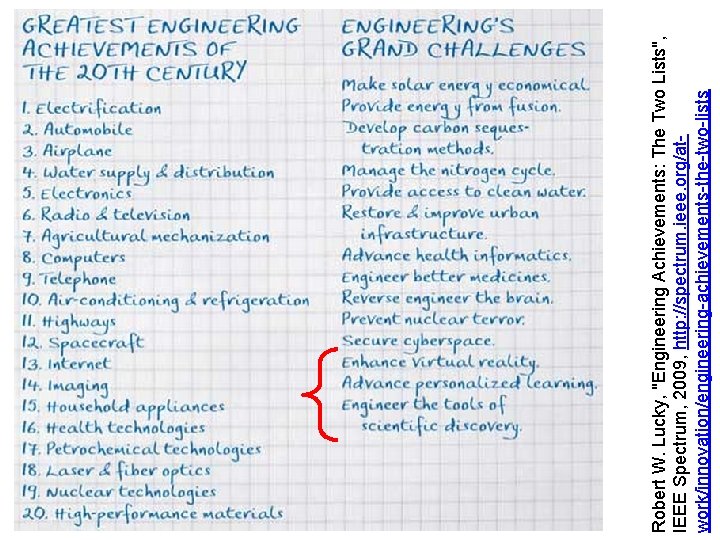 GREATEST ENGINEERING
ACHIEVEMENTS OF
THE 20TH CENTURY
1. Electrification
2. Automobile
3. Airplane
4. Water supply & distribution
5. Electronics
6. Radio & television
7. Agricultural mechanization
8. Computers
9. Telephone
10. Air-conditioning & refrigeration
11. Highways
12. Spacecraft
13. Internet
14. Imaging
15. Household appliances
16. Health technologies
17. Petrochemical technologies
18. Laser & fiber optics
19. Nuclear technologies
20. High-performance materials
ENGINEERING'S
GRAND CHALLENGES
Make solar energy economical.
Provide energy from fusion.
Develop carbon seques-
tration methods.
Manage the nitrogen cycle.
Provide access to clean water.
Restore & improve urban
infrastructure.
Advance health informatics.
Engineer better medicines.
Reverse engineer the brain.
Prevent nuclear terror.
Secure cyberspace.
Enhance virtual reality.
Advance personalized learning.
Engineer the tools of
scientific discovery.
Robert W. Lucky, "Engineering Achievements: The Two Lists",
IEEE Spectrum, 2009, http://spectrum.ieee.org/at-
work/innovation/engineering-achievements-the-two-lists